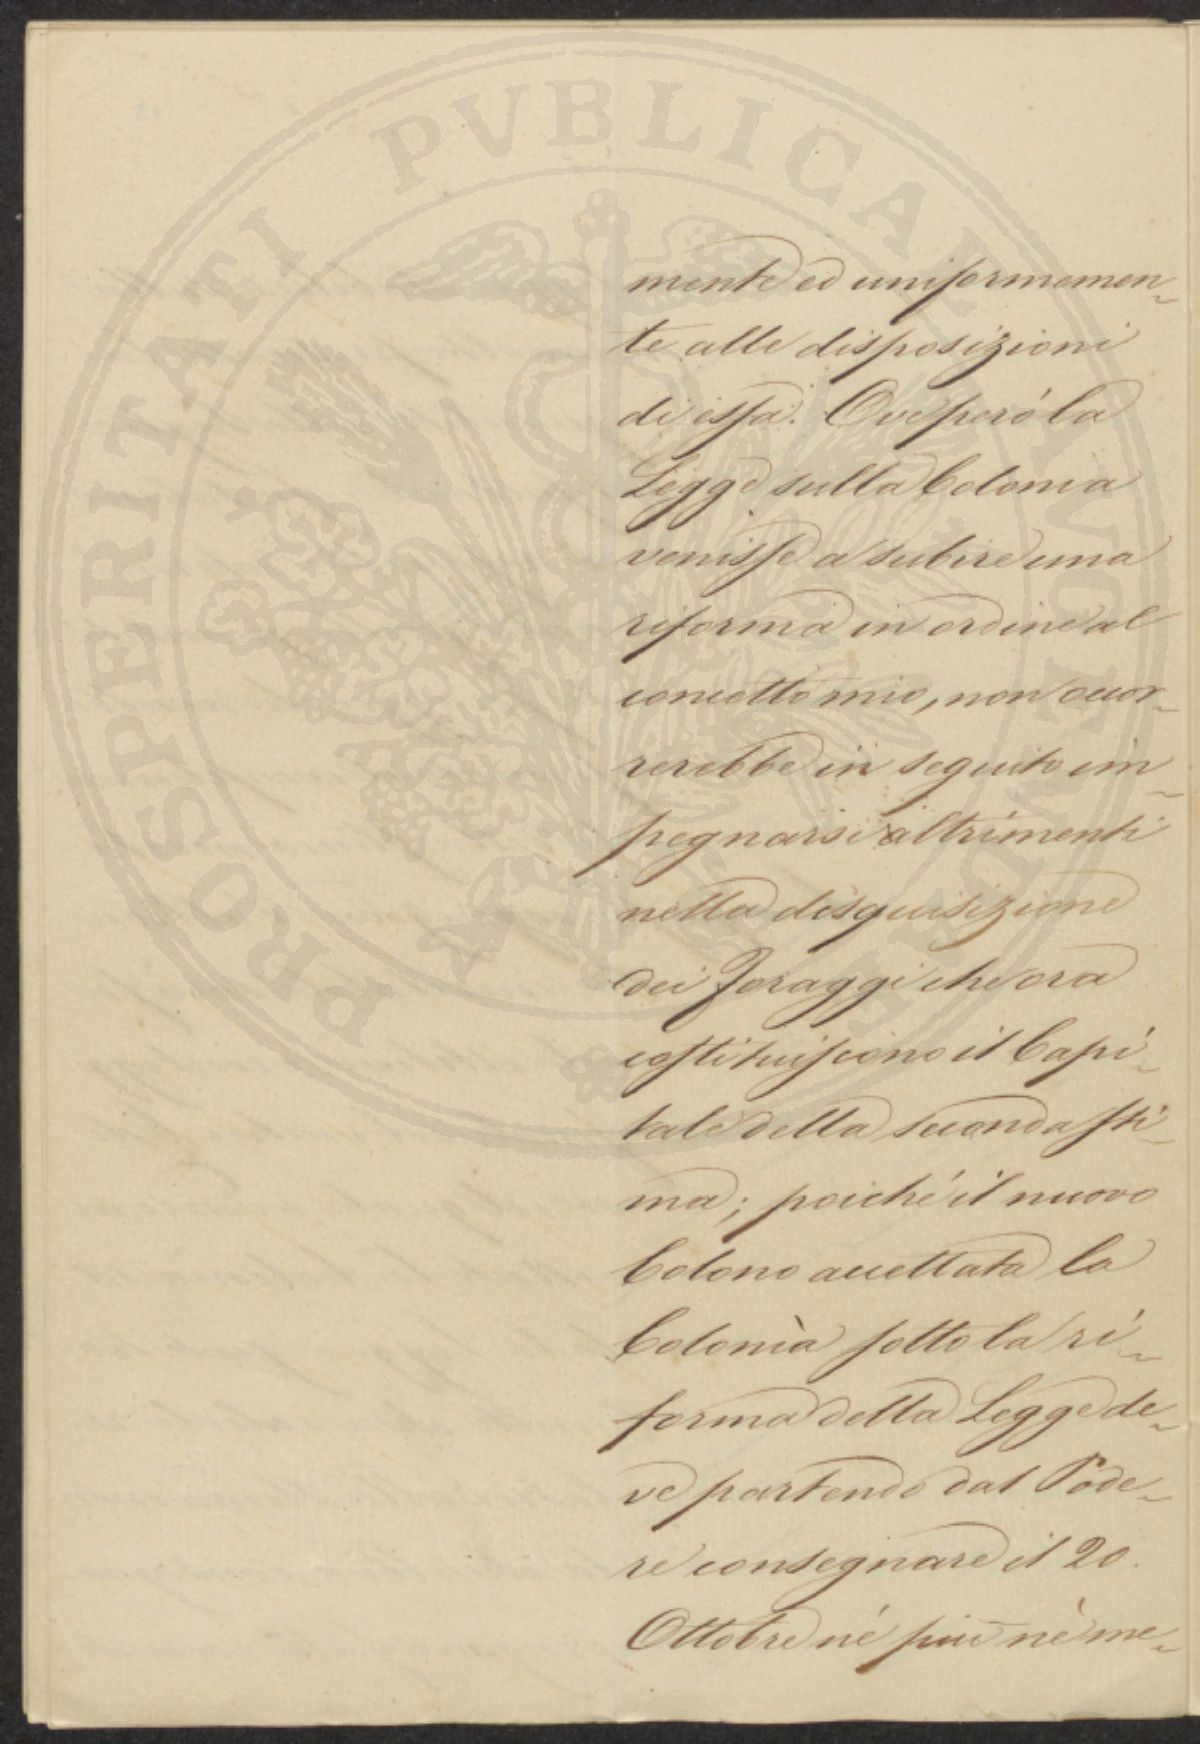 PROSPERITATI PVBLICAE
mente ed uniformemen-
te alle disposizioni
di essa. Ove però la
Legge sulla Colonia
venisse a subire una
riforma in ordine al
concetto mio, non occor-
rerebbe in seguito im-
pegnarsi altrimenti
nella disquisizione
dei foraggi che ora
costituiscono il Capi-
tale della seconda sti-
ma; poiché il nuovo
Colono accettata la
Colonìa sotto la ri-
forma della Legge de-
ve partendo dal Pode-
re consegnare il 20.
Ottobre né più nè me-